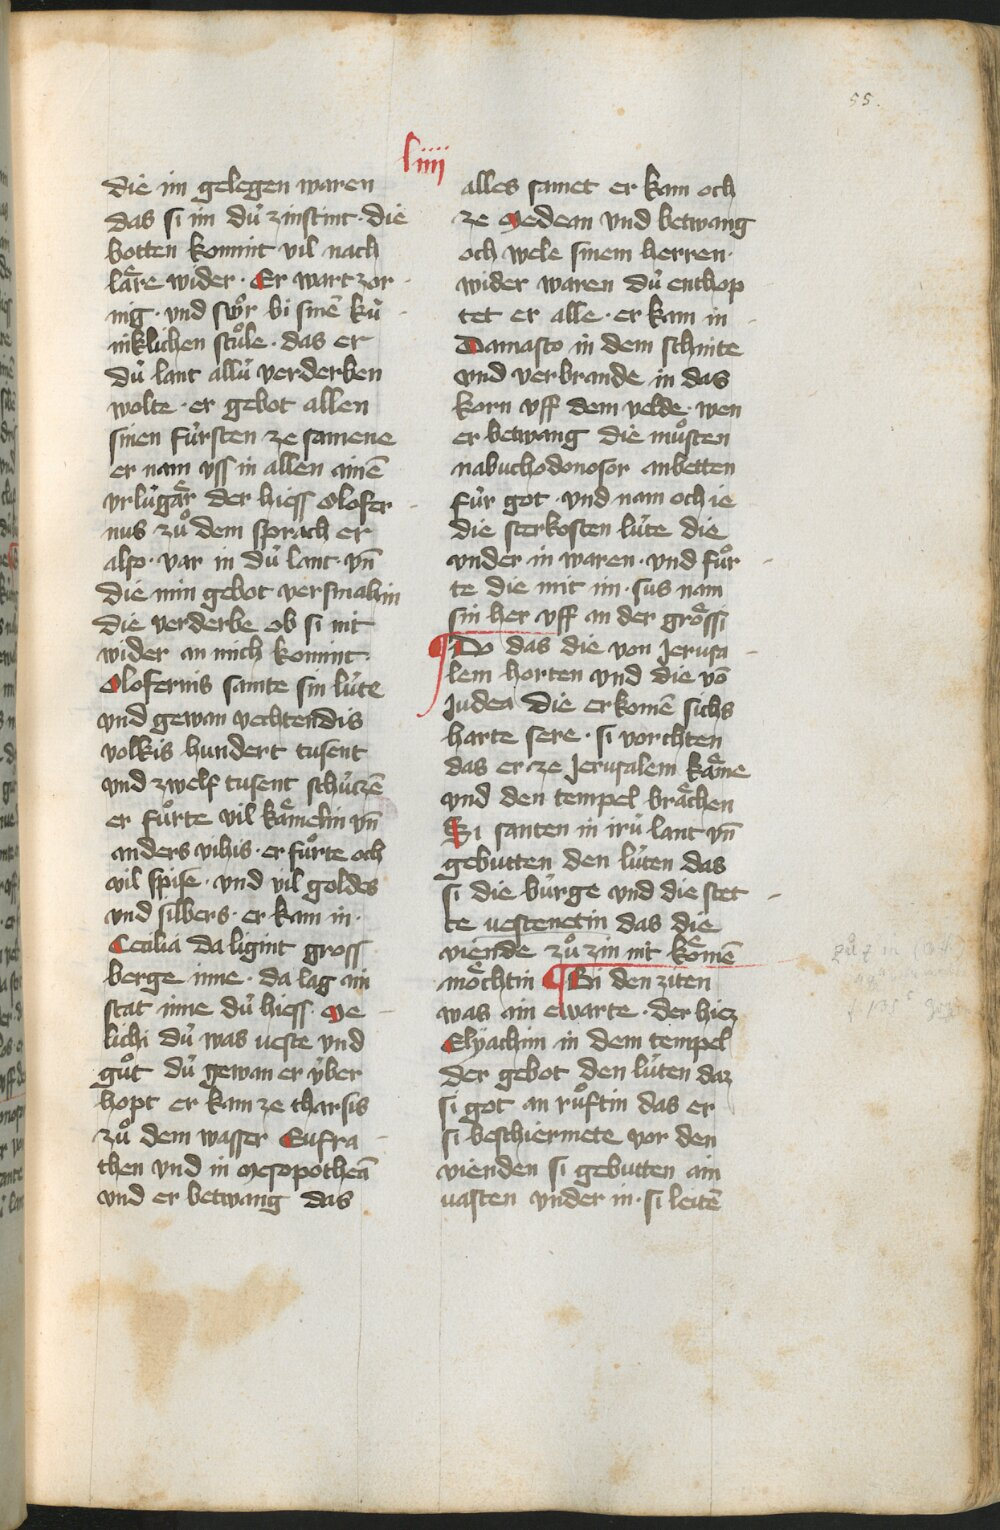 55.
liiij
die im gelegen waren
das si im dů zinstint · die
botten komint vil nach
låre wider · Er wart zor
nig · vnd swůr bi sinē kú
niklichen stůle · das er
dú lant allú verderben
wolte · er gebot allen
sinen fúrsten ze samene
er nam vss in allen ainē
vrlúgår der hiess olofer
nus zů dem sprach er
also · var in dú lant · vn̄
die min gebot versmahin
die verderbe ob si nit
wider an mich komint ·
Olofernis samte sin lúte
vnd gewan vechtendis
volkis hundert tusent
vnd zwelf tusent schúczē
er fůrte vil kåmelin vn̄
anders vihis · er fůrte och
vil spise · vnd vil goldes
vnd silbers · er kam in ·
Cecilia da ligint gross
berge inne · da lag ain
stat inne dú hiess · Me
lichi dú was veste vnd
gůt dú gewan er vber
hopt er kam ze tharsis
zů dem wasser Eufra
then vnd in mesopotheā
vnd er betwang das
alles samet er kam och
ze Medean vnd betwang
och wele sinem herren ·
wider waren dú enthop
tet er alle · er kam in
Damasco in dem schnite
vnd verbrande in das
korn vff dem velde · wen
er betwang die můsten
nabuchodonosor anbetten
fúr got · vnd nam och ie
die sterkosten lúte die
vnder in waren · vnd fůr
te die mit im · sus nam
sin her vff an der grőssi
¶ Do das die von Jerusa
lem horten vnd die vō
Judea die erkomē sichs
harte sere · si vorchten
das er ze Jerusalem kåme
vnd den tempel bråchen
Si santen in irú lant vn̄
gebutten den lúten das
si die búrge vnd die stet
te vestenetin das die
viende zů zin nit kőmē
mőchtin ¶ Bi den ziten
was ain ewarte · der hiez
Elyachim in dem tempel
der gebot den lúten daz
si got an růftin das er
si beschiermete vor den
vienden si gebutten ain
vasten vnder in · si leitē